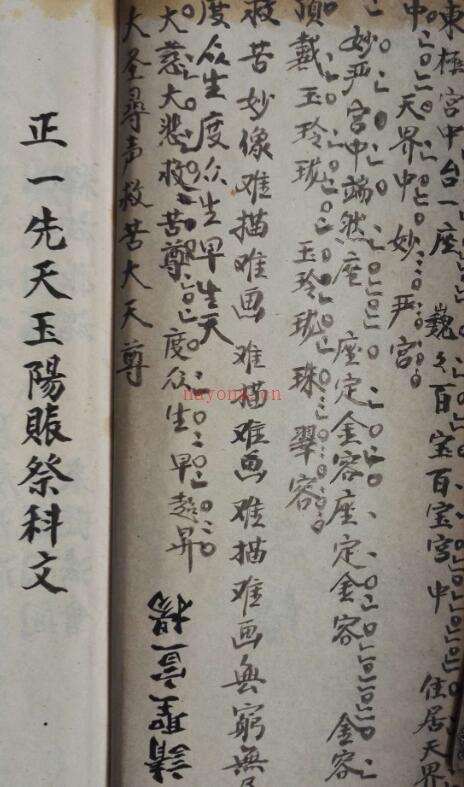 東極宮中台一座 巍々百宝百宝宮中 住居天界
中 天界中妙严宮
妙严宮中端然座 座定金容座定金容 金容
頂戴玉玲珑 玉玲珑珠翠容
救苦妙像难描难画难描难画难描难画無窮無
度众生度众生早生天
大慈大悲救苦尊 度众生早超昇
大圣尋声救苦大天尊
請聖宣揚
正一先天玉陽賑祭科文
nayona.cn